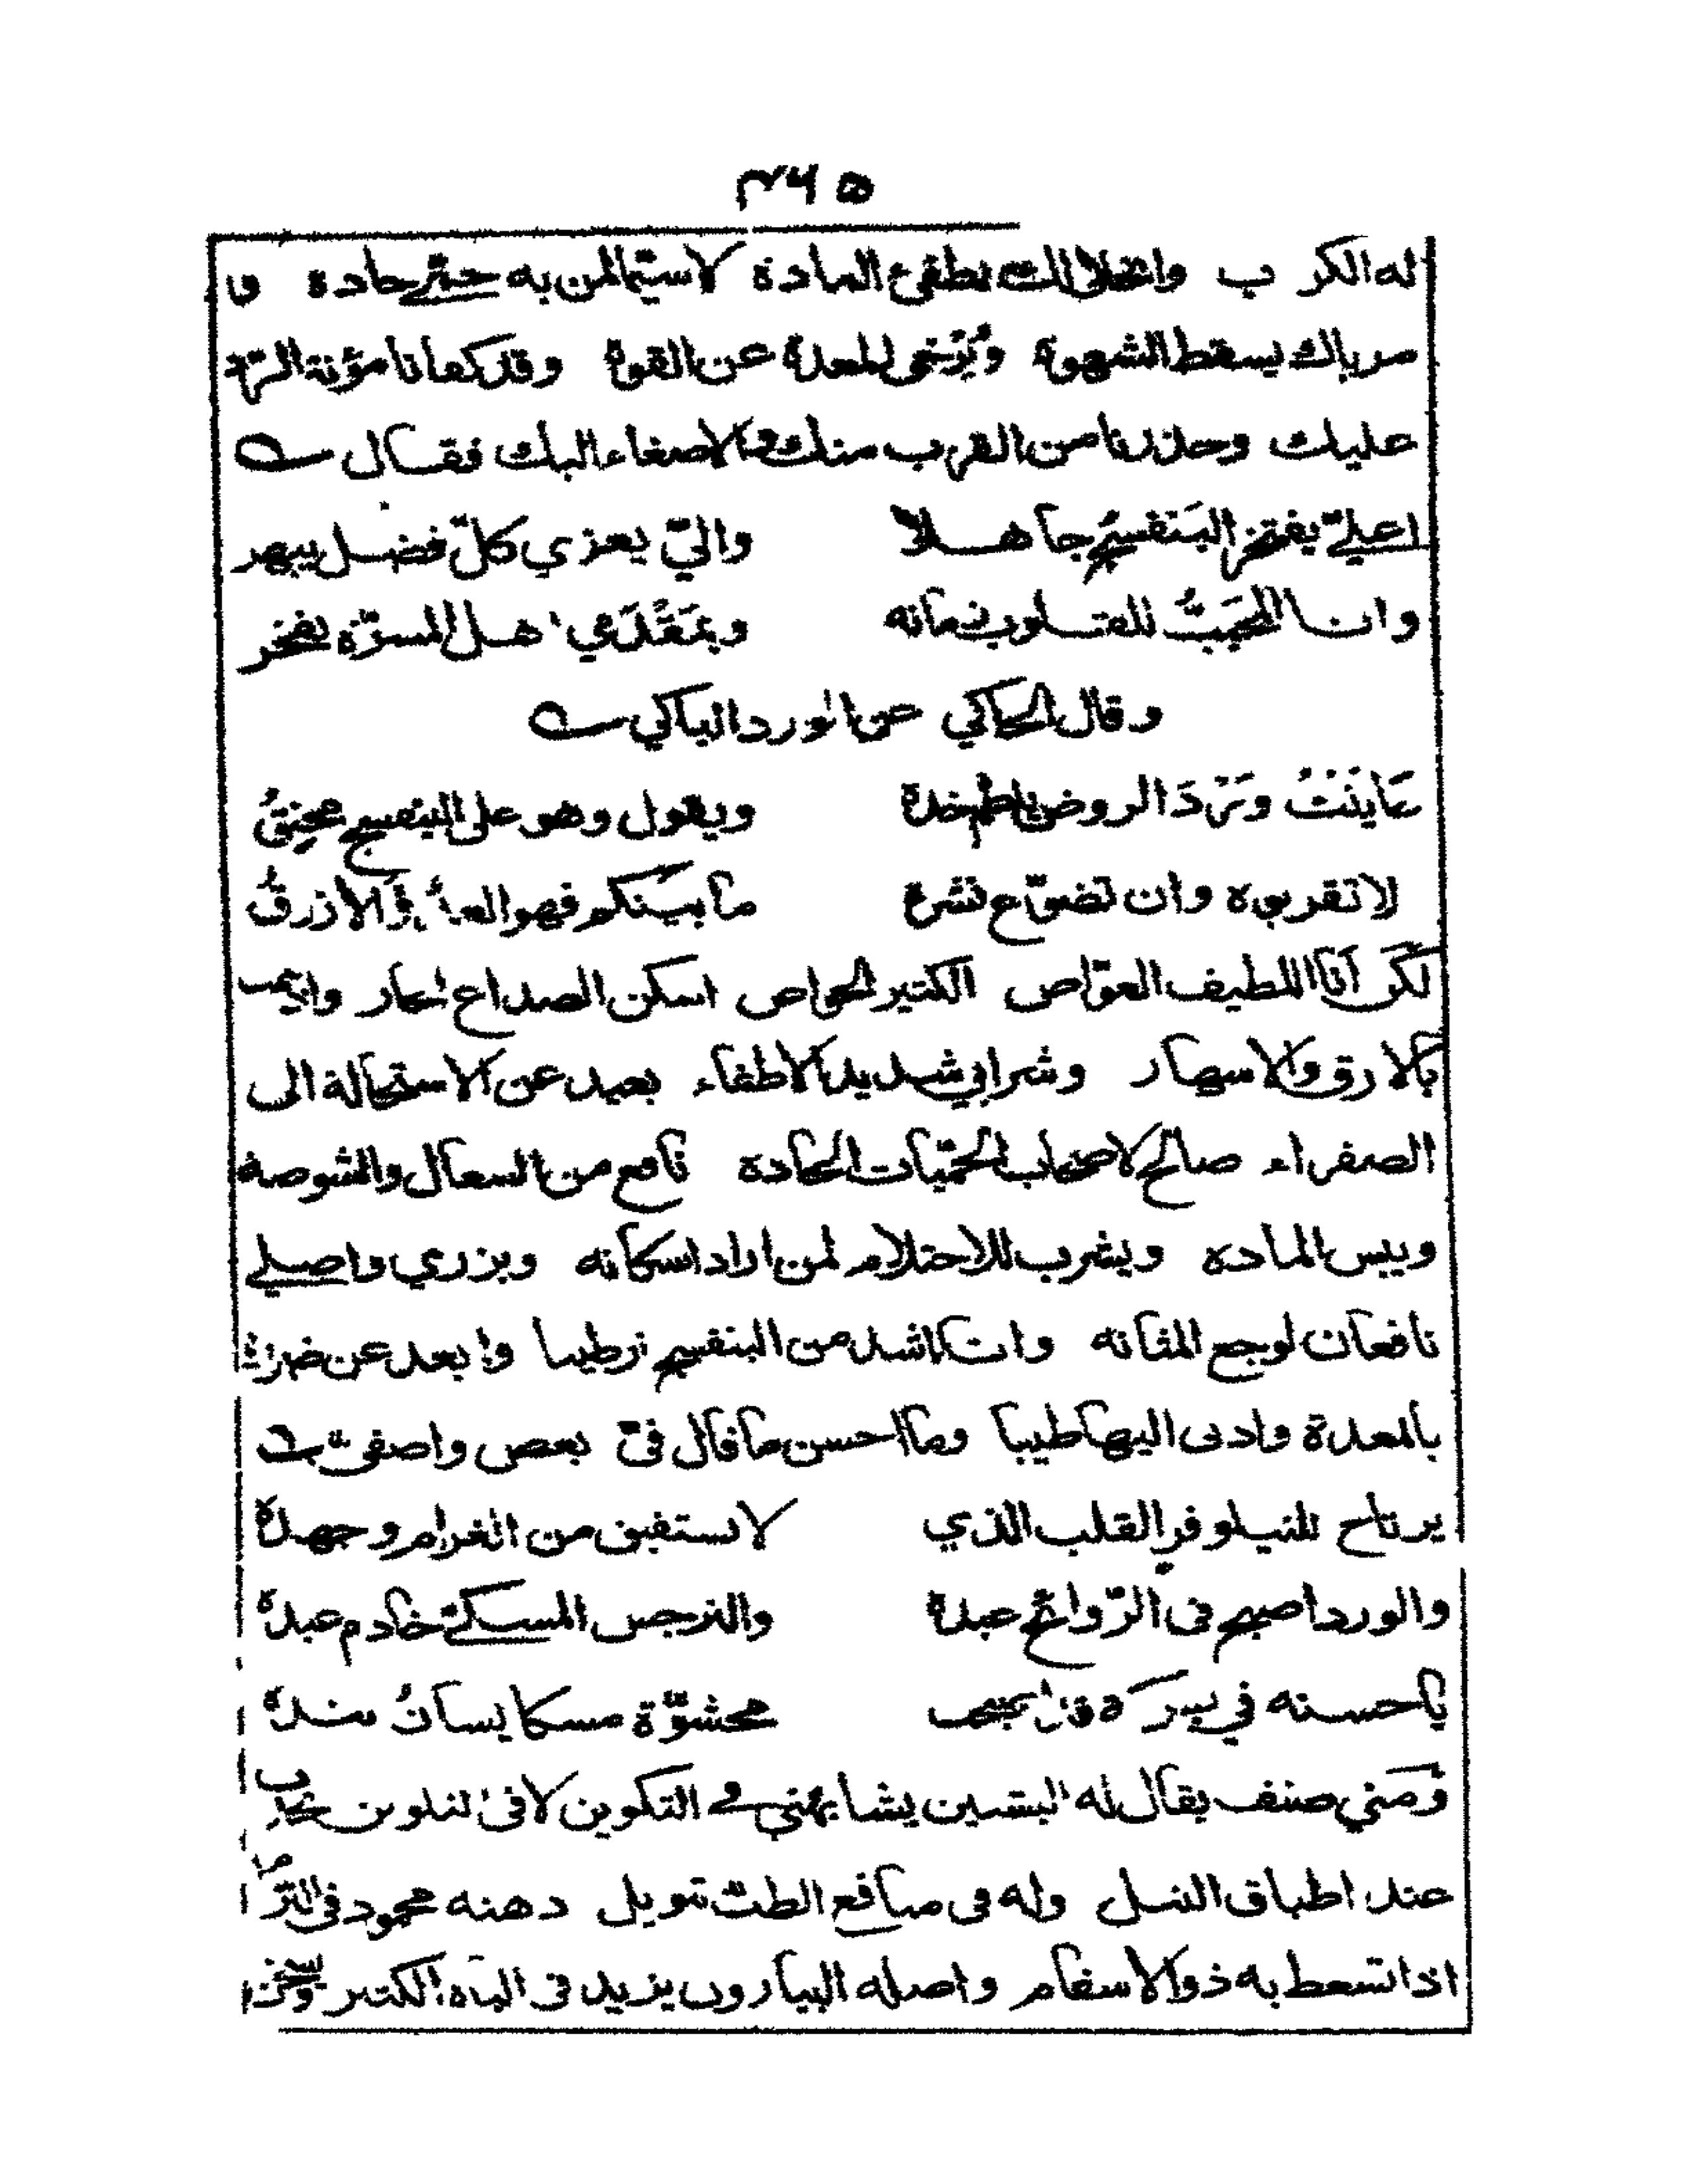 ٣٦٥
له الكرب وانحلالك يطفئ المادة لاسيما لمن به حمى حادة و
مرباك يسقط الشهوة ويرخى المعدة عن القوة وقد كفانا مؤنة الرد
عليك وحذرنا من القرب منك والاصغاء اليك فقال
اعلي يفتخر البنفسج جاهلا والي يعزي كل فضل يبهر
وانا المحبب للقلوب زمانه وبمقدمي اهل المسرة يفخر
وقال الحاكي عن الورد الباكي
عاينت ورد الروض يلطم خده ويقول وهو على البنفسج محنق
لا تقربوه وان تضوع نشره ما بينكم فهو العدو الازرق
لكن انا اللطيف الغواص الكثير الخواص اسكن الصداع الحار واذهب
بالارق والاسهار وشرابي شديد الاطفاء بعيد عن الاستحالة الى
الصفراء صالح لاصحاب الحميات الحادة نافع من السعال والشوصة
ويبس المادة ويشرب للاحتلام لمن اراد اسكانه وبزري واصلي
نافعان لوجع المثانه وانا اشد من البنفسج ترطيبا وابعد عن ضرر
بالمعدة وادنى اليها طيبا وما احسن ما قال في بعض واصفي
يرتاح للنيلوفر القلب الذي لا يستفيق من الغرام وجهده
والورد اصبح في الروائح عبده والنرجس المسكي خادم عبده
يا حسنه في بركة قد اصبحت محشوة مسكا يشاب بنده
ومني صنف يقال له البشنين يشابهني في التكوين لا في التلوين يحدث
عند اطباق النيل وله في منافع الطب تنويل دهنه محمود في البرسام
اذا تسعط به ذو الاسقام واصله البيارون يزيد في الباه الكثير ويسخن